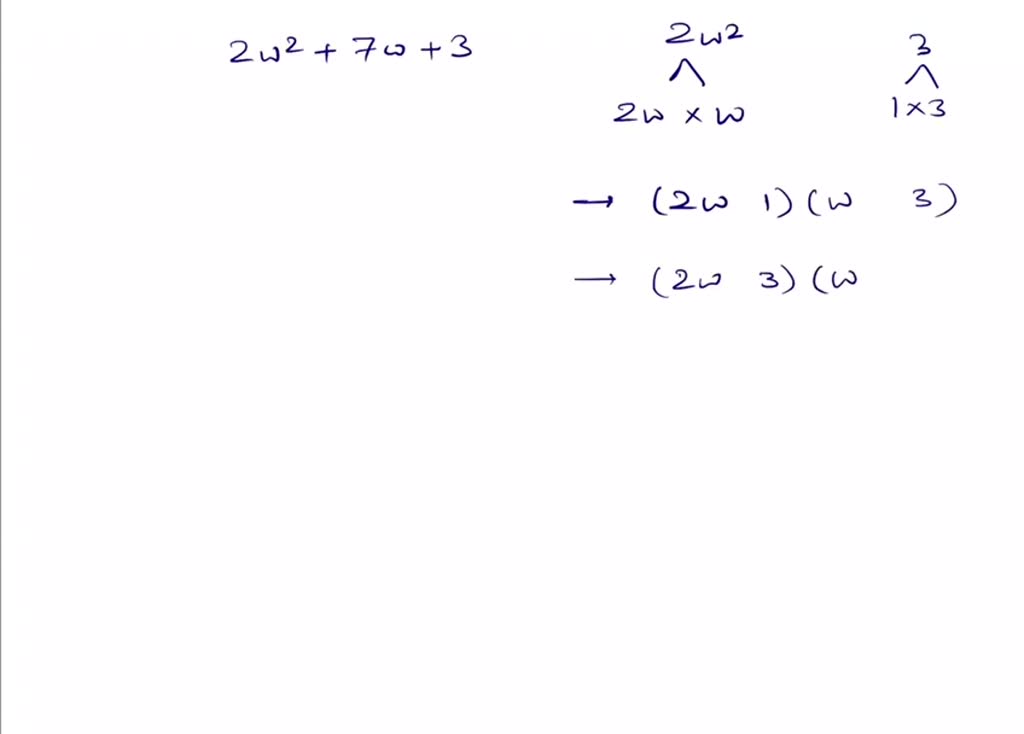 2w² + 7w + 3
2w²
3
2w × w
1 × 3
→ (2w 1)(w 3)
→ (2w 3)(w